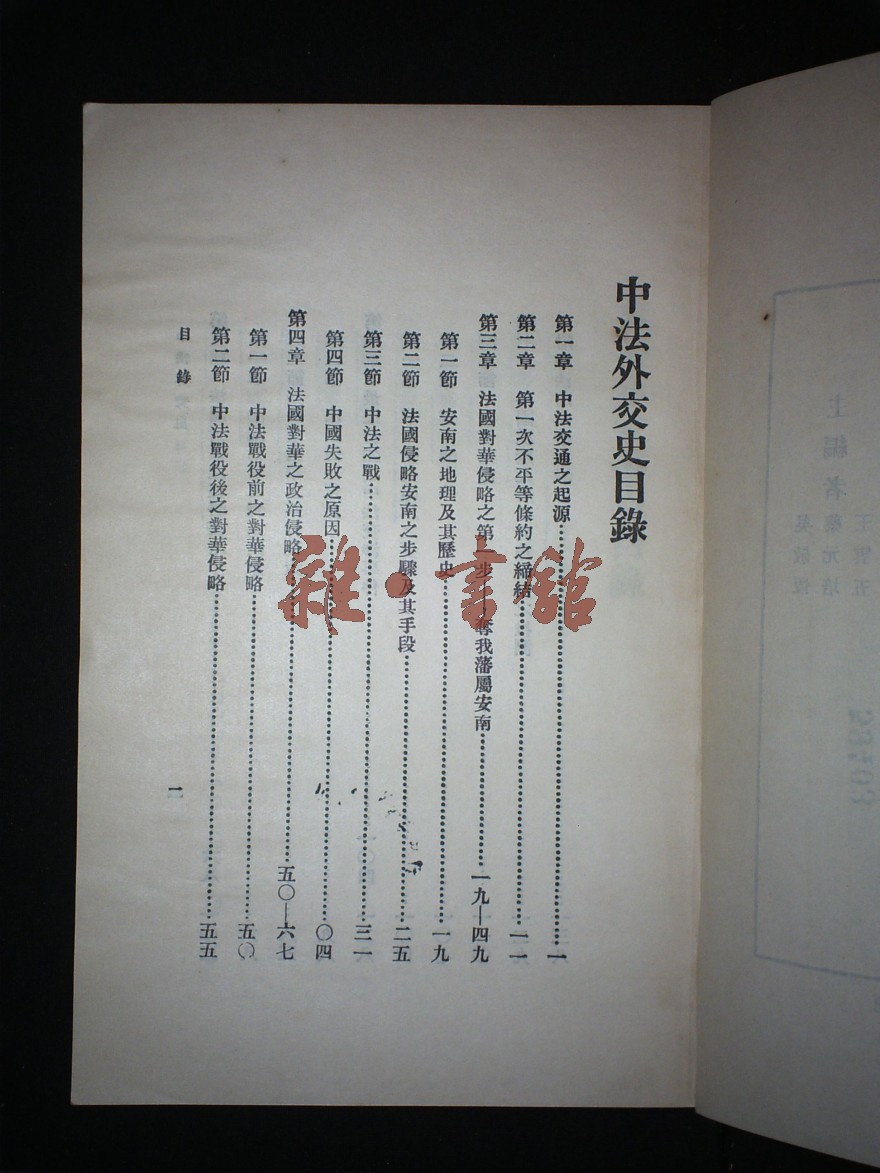 主編者
王雲五
蔡元培
吳敬恆
中法外交史目錄
第一章 中法交通之起源……一
第二章 第一次不平等條約之締結……一一
第三章 法國對華侵略之第一步——奪我藩屬安南……一九—四九
第一節 安南之地理及其歷史……一九
第二節 法國侵略安南之步驟及其手段……二五
第三節 中法之戰……三一
第四節 中國失敗之原因……〇四
第四章 法國對華之政治侵略……五〇—六七
第一節 中法戰役前之對華侵略……五〇
第二節 中法戰役後之對華侵略……五五
目錄
一
雜·书館